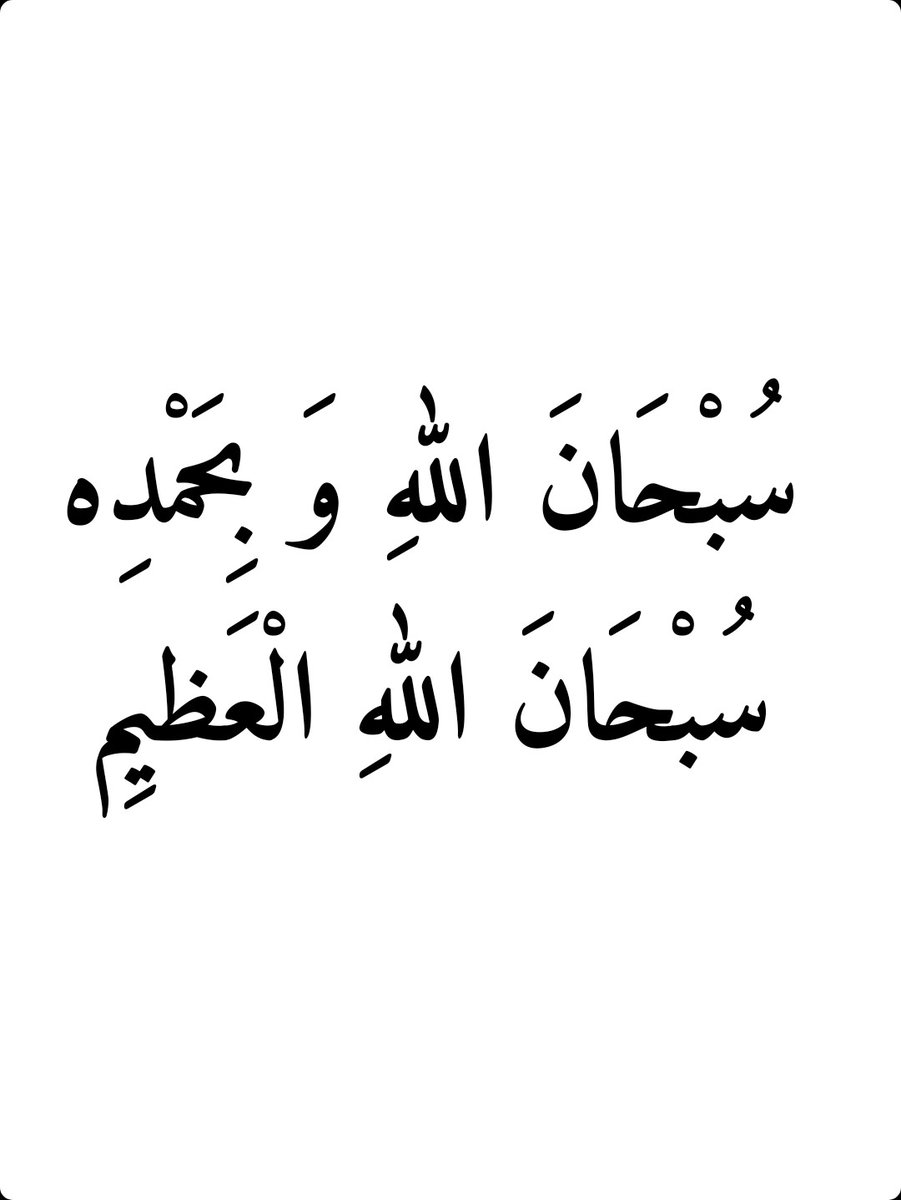 سُبْحَانَ اللهِ وَ بِحَمْدِه
سُبْحَانَ اللهِ الْعَظِيمِ